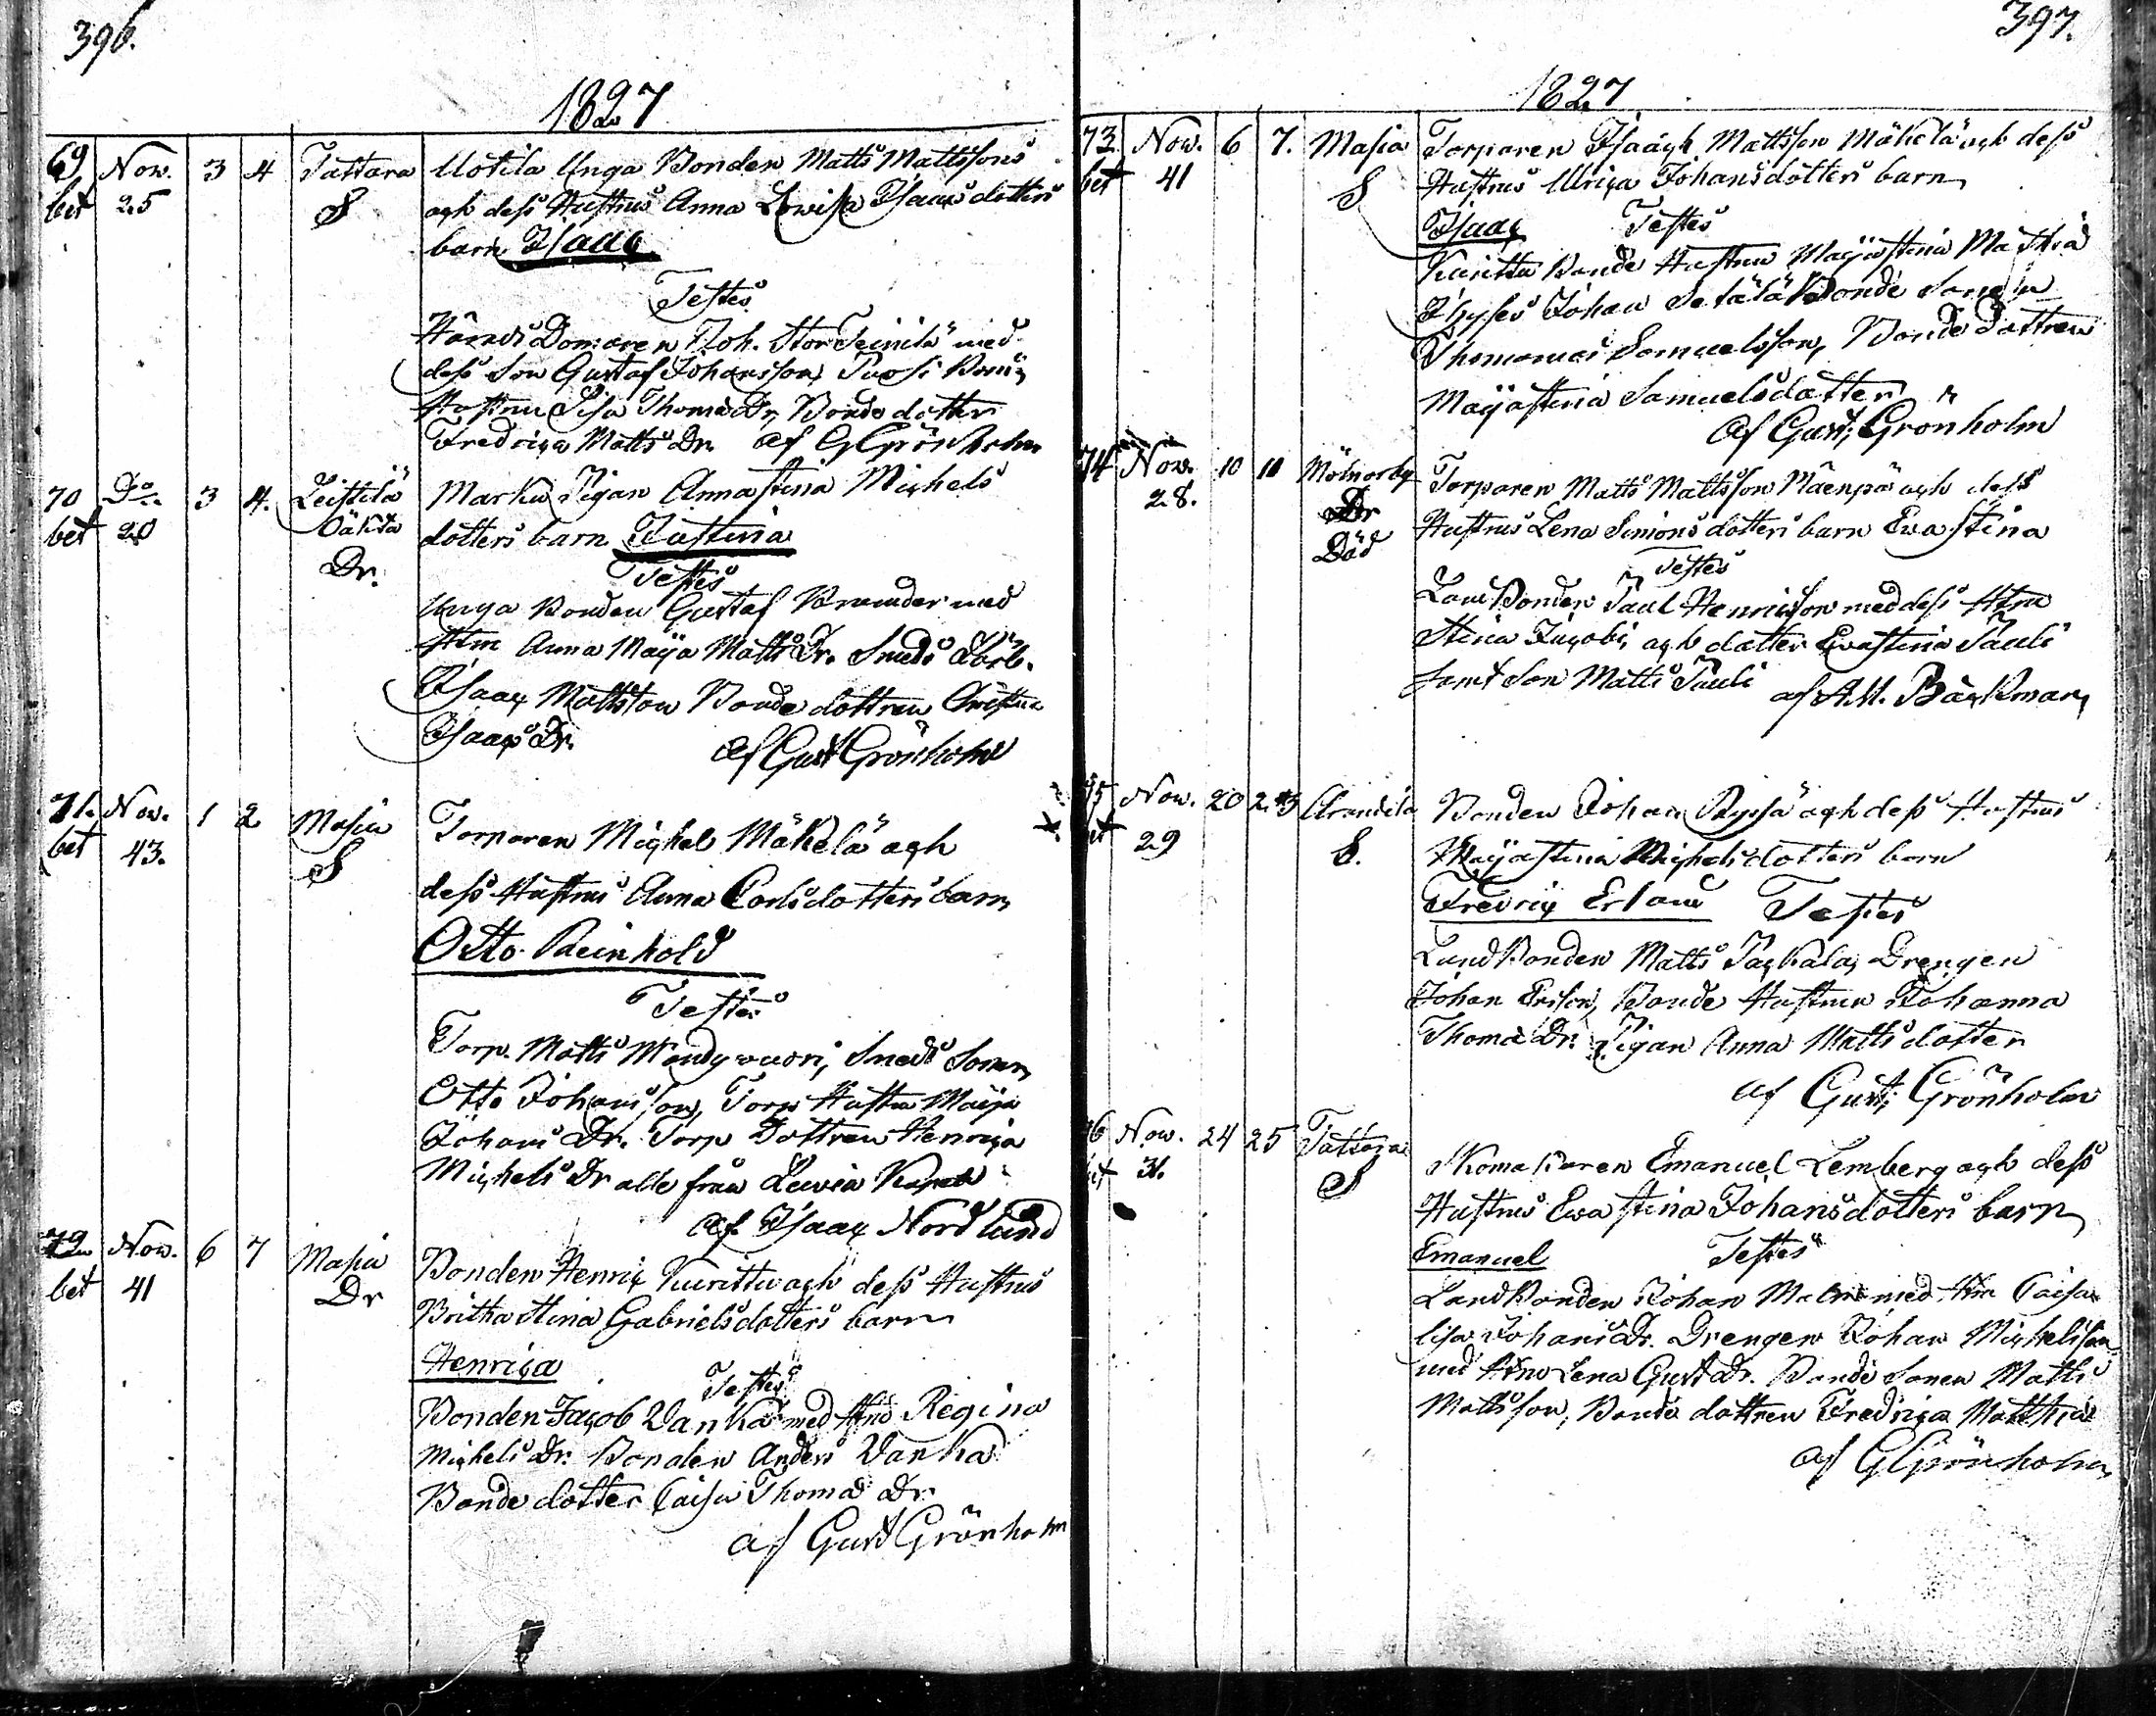 396.
1827
69 Nov. 3 4 Tattara Uotila Unga Bonden Matts Mattssons
bet 25 S och dess Hustrus Anna Lovisa Isaacs dotters
barn Isaac
Testes
Härads Domaren Joh. Stor Teinilä med
dess Son Gustaf Johansson,
Hustrun Lisa Thomæ Dr, Bonde dotter
Fredrica Matts Dr. af G Grönholm
70 Do. 3 4. Leistilä Marku Pigan Annastina Michels
bet 20 dotters barn Justina
Dr.
Testes
Unga Bonden Gustaf med
Hu Anna Maja Matts Dr. Smeds
Isaac Mattsson Bonde dottren Christina
Isaacs Dr.
af Gust Grönholm
71. Nov. 1 2 Masia Torparen Michel Mäkelä och
bet 43. S
dess Hustrus Anna Carlsdotters barn
Otto Reinhold
Testes
Torp. Matts Smeds Sonen
Otto Johansson, Torp Hustru Maja
Johans Dr. Torp Dottren Henrica
Michels Dr alle från
af Isaac Nordlund
72 Nov. 6 7 Masia Bonden Henric Kurittu och dess Hustrus
bet 41 Dr Britha Stina Gabrielsdotters barn
Henrica
Testes
Bonden Jacob Vanka med Regina
Michels Dr. Bonden Anders Vanka
Bonde dotter Caisa Thomæ Dr.
af Gust Grönholm
397.
1827
73. Nov. 6 7. Masia Torparen Isaach Mattsson Mäkelä och dess
bet 41 S Hustrus Ulrica Johansdotters barn
Isaac Testes
Kurittu Bonde Hustrun Majastina
Johan Setälä Bonde Sonen
Thomas Samuelsson, Bonde Dottren
Majastina Samuelsdotter
af Gust, Grönholm
74 Nov. 10 11 Torparen Matts Mattsson Mäenpä och dess
28. Dr Hustrus Lena Simons dotters barn Eva Stina
Död
Testes
Bonden Paul Henricsson med dess
Stina Jacobs, och dotter Evastina Pauls
samt Son Matts Pauls
af A.M. Bäckman
75 Nov. 20 Arandila Bonden Johan och dess Hustrus
bet 29 S. Majastina Michelsdotters barn
Fredric Erland Testes
Landbonden Matts Drengen
Johan Ericson, Bonde Hustrun Johanna
Thomæ Dr. Pigan Anna Mattsdotter
af Gust, Grönholm
76 Nov. 24 25 Tattara Skomakaren Emanuel Lemberg och dess
bet 31. S
Hustrus Eva Stina Johansdotters barn
Emanuel Testes
Landbonden Johan med Caisa
lisa Johans Dr. Drengen Johan Michelsson
med Lena Gust Dr. Bonde Sonen Matts
Mattsson, Bonde dottren Fredrica Matthiæ
af G Grönholm